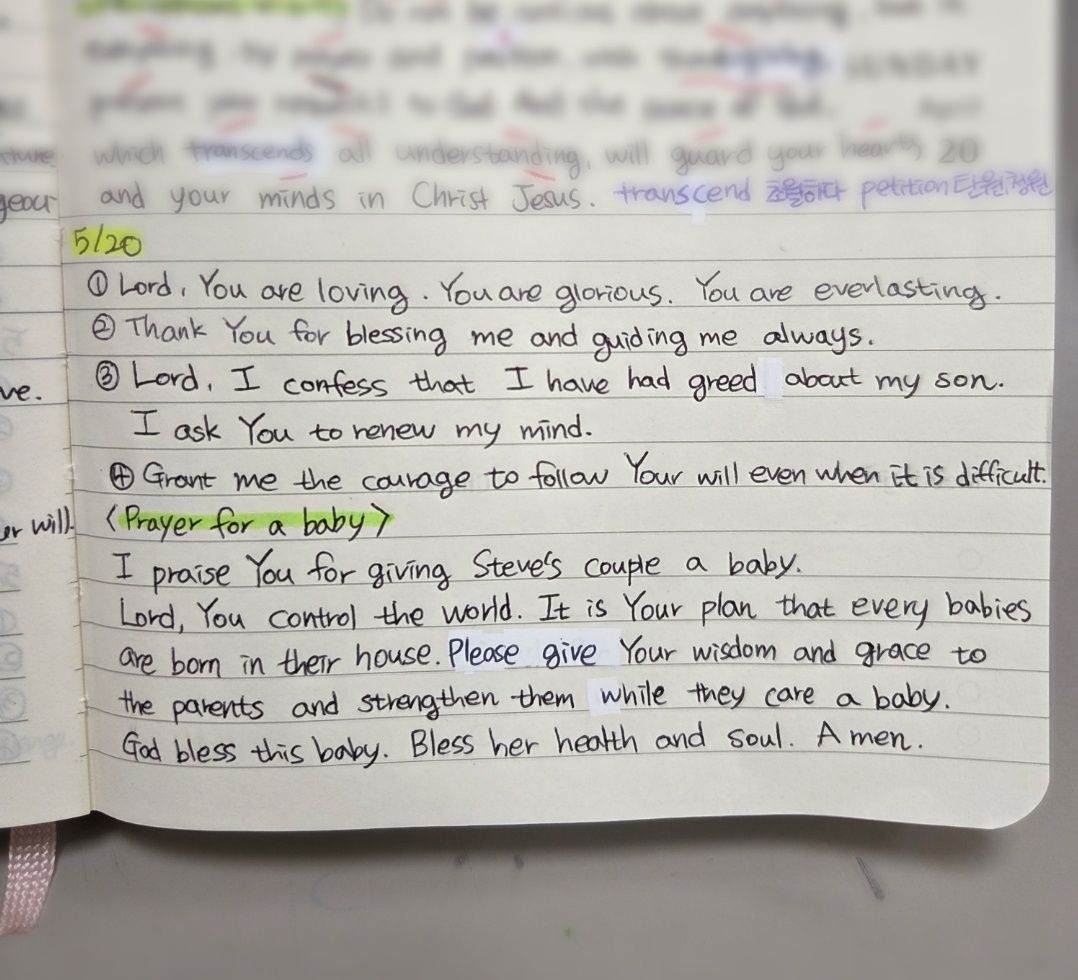 everything, by prayer and petition, with thanksgiving, SUNDAY
present your requests to God. And the peace of God, April
which transcends all understanding, will guard your hearts 20
and your minds in Christ Jesus. transcend 초월하다 petition 탄원, 청원
5/20
① Lord, You are loving. You are glorious. You are everlasting.
② Thank You for blessing me and guiding me always.
③ Lord, I confess that I have had greed about my son.
I ask You to renew my mind.
④ Grant me the courage to follow Your will even when it is difficult.
<Prayer for a baby>
I praise You for giving Steve's couple a baby.
Lord, You control the world. It is Your plan that every babies
are born in their house. Please give Your wisdom and grace to
the parents and strengthen them while they care a baby.
God bless this baby. Bless her health and soul. Amen.
ve.
er will.